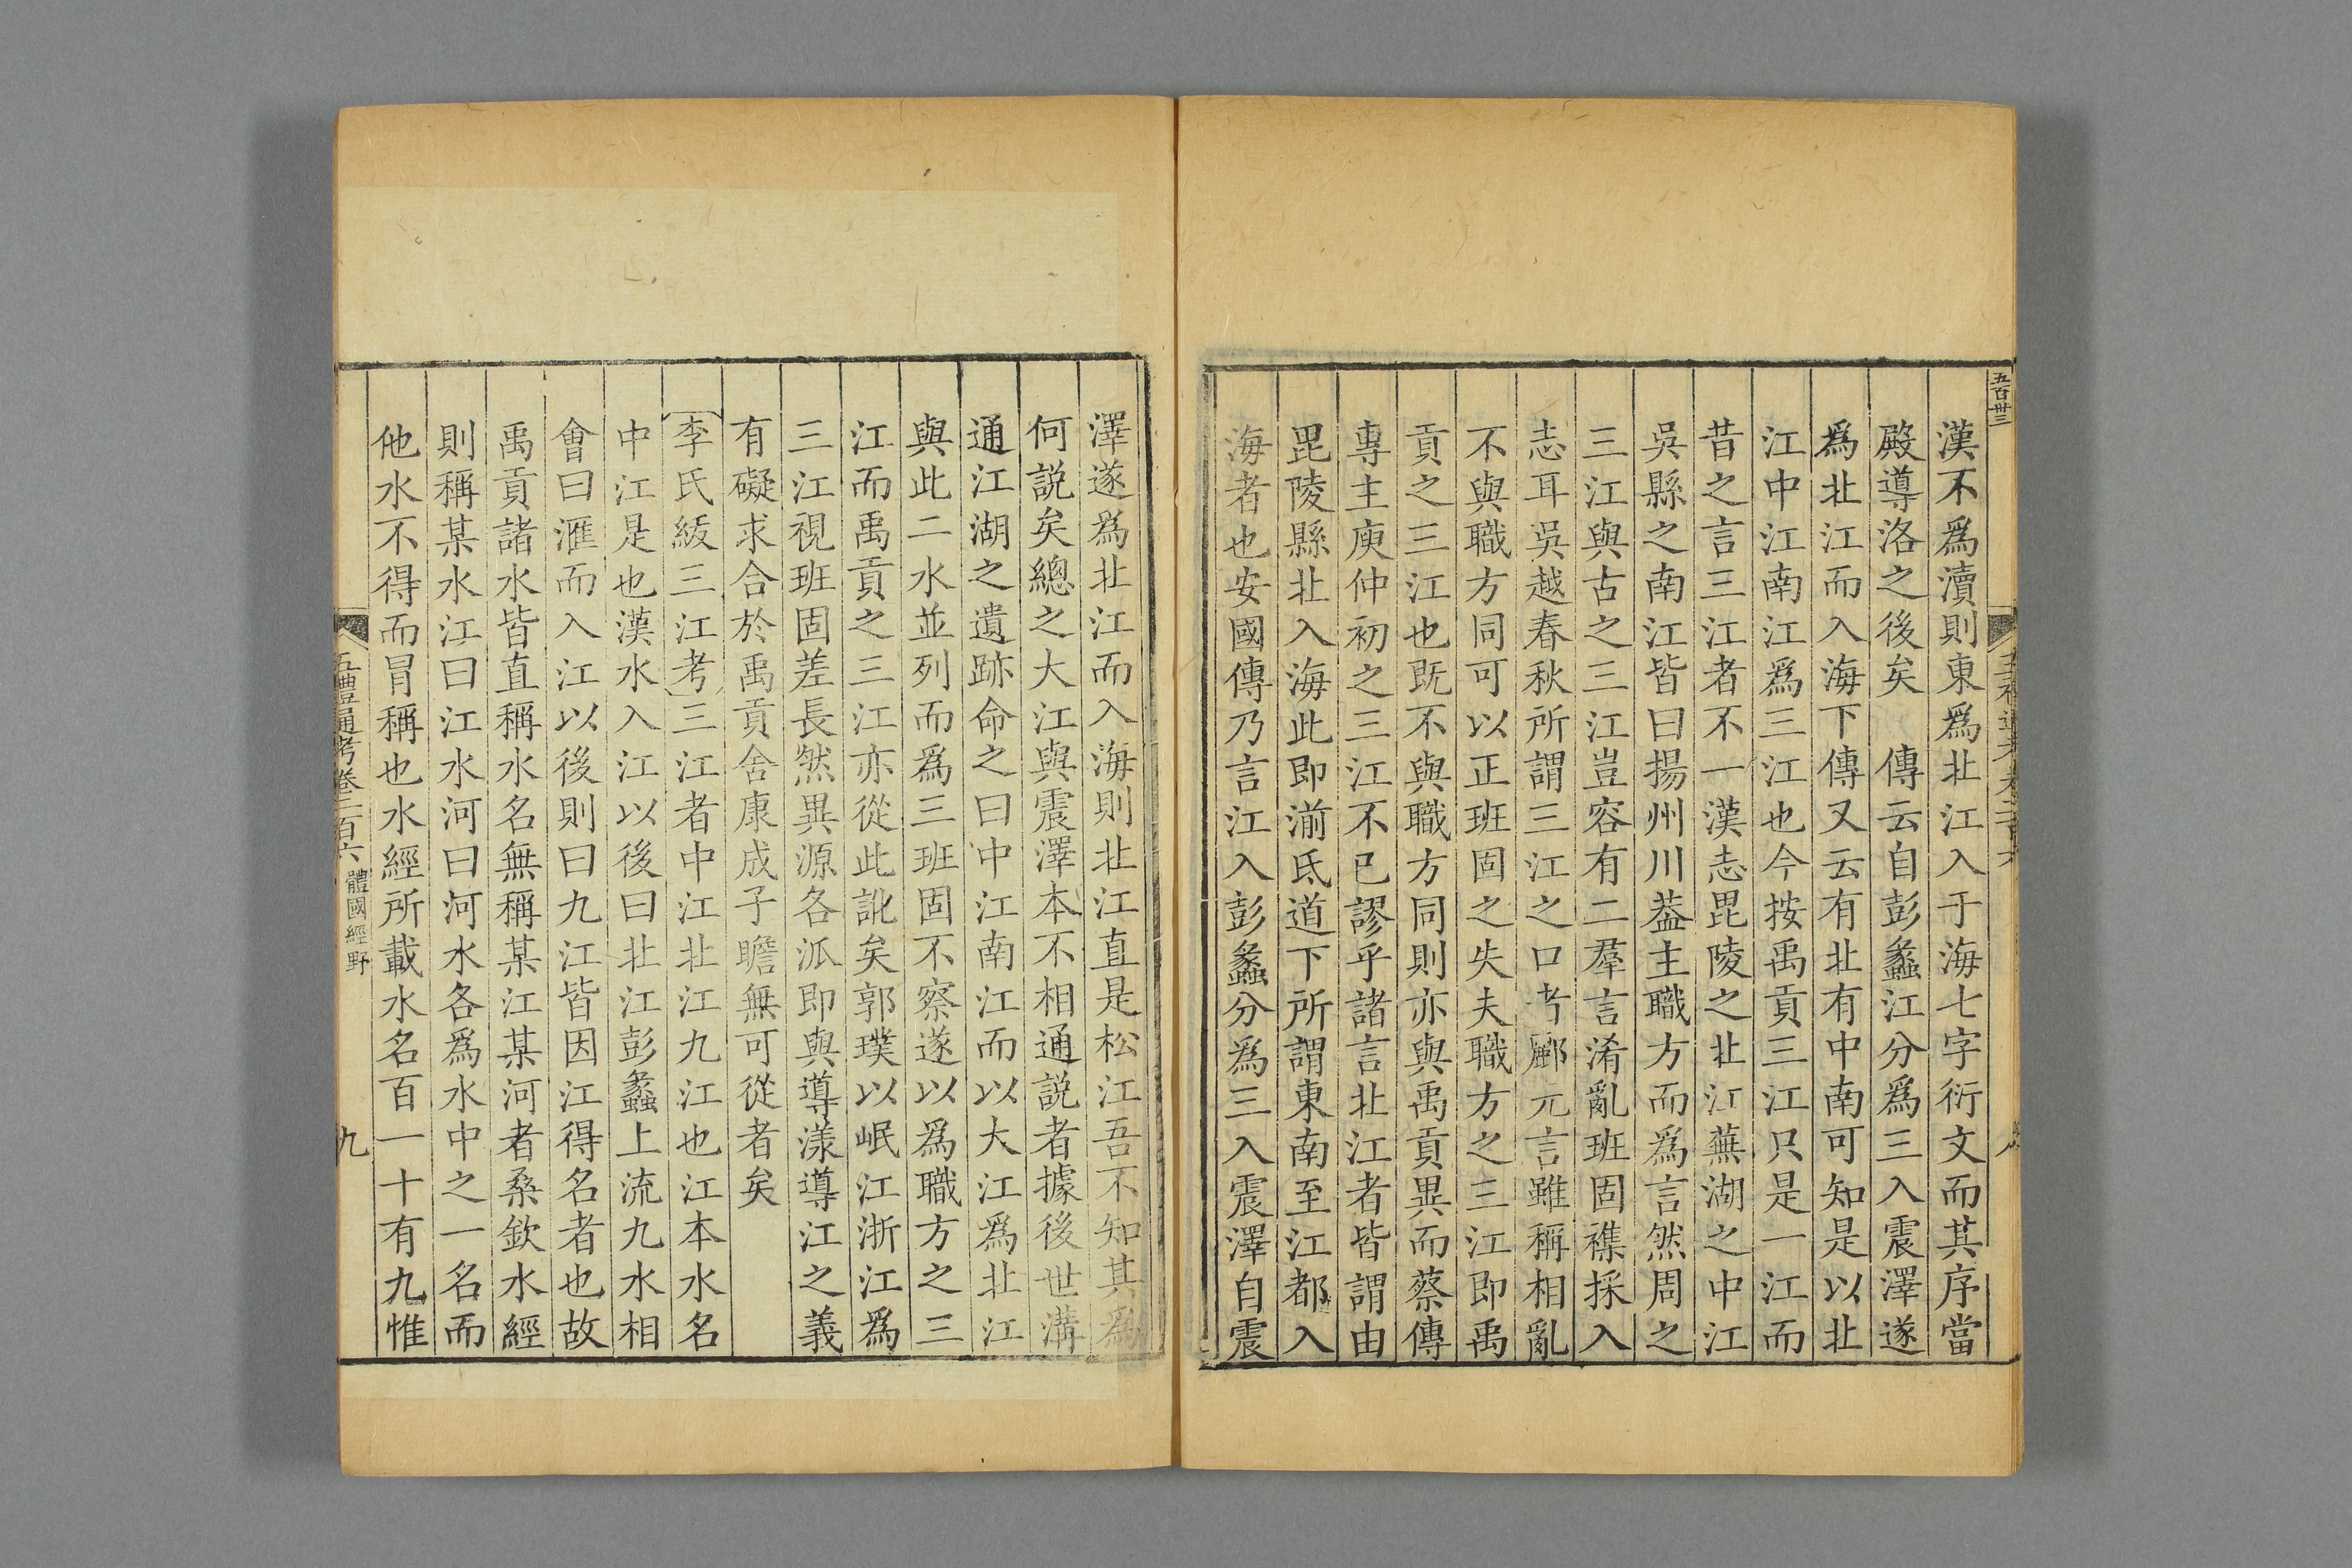 五百卅三
漢不爲瀆則東爲北江入于海七字衍文而其序當
殿導洛之後矣　傳云自彭蠡江分爲三入震澤遂
爲北江而入海下傳又云有北有中南可知是以北
江中江南江爲三江也今按禹貢三江只是一江而
昔之言三江者不一漢志毘陵之北江蕪湖之中江
吳縣之南江皆曰揚州川葢主職方而爲言然周之
三江與古之三江豈容有二羣言淆亂班固襍採入
志耳吳越春秋所謂三江之口考酈元言雖稱相亂
不與職方同可以正班固之失夫職方之三江即禹
貢之三江也旣不與職方同則亦與禹貢異而蔡傳
專主庾仲初之三江不已謬乎諸言北江者皆謂由
毘陵縣北入海此即湔氐道下所謂東南至江都入
海者也安國傳乃言江入彭蠡分為三入震澤自震
澤遂爲北江而入海則北江直是松江吾不知其爲
何説矣總之大江與震澤本不相通説者據後世溝
通江湖之遺跡命之曰中江南江而以大江爲北江
與此二水並列而爲三班固不察遂以爲職方之三
江而禹貢之三江亦從此訛矣郭璞以岷江浙江爲
三江視班固差長然異源各派即與導漾導江之義
有礙求合於禹貢舍康成子瞻無可從者矣
李氏紱三江考三江者中江北江九江也江本水名
中江是也漢水入江以後曰北江彭蠡上流九水相
會曰滙而入江以後則曰九江皆因江得名者也故
禹貢諸水皆直稱水名無稱某江某河者桑欽水經
則稱某水江曰江水河曰河水各爲水中之一名而
他水不得而冒稱也水經所載水名百一十有九惟
五禮通考卷二百六　體國經野
九